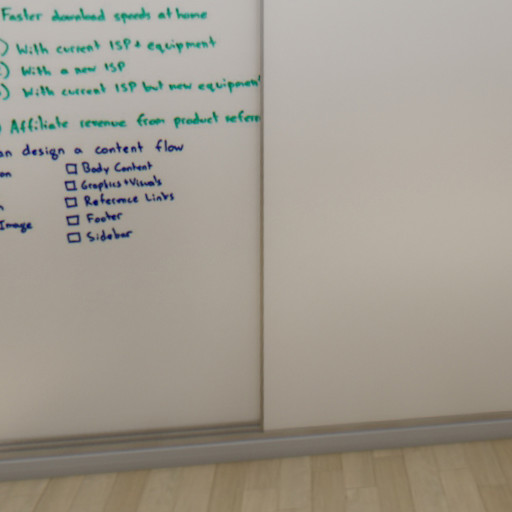 Faster download speeds at home
) With current ISP + equipment
) With a new ISP
) With current ISP but new equipment
) Affiliate revenue from product refer
an design a content flow
on
☐ Body Content
☐ Graphics + Visuals
☐ Reference Links
☐ Footer
Image
☐ Sidebar